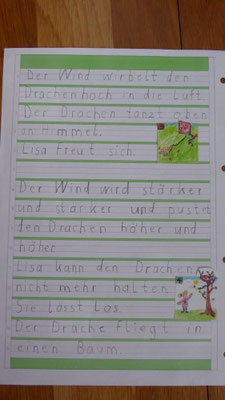 Der Wind wirbelt den
Drachenhoch in die Luft.
Der Drachen tanzt oben
am Himmel.
Lisa freut sich.
Der Wind wird stärker
und stärker und pustet
den Drachen höher und
höher
Lisa kann den Drachen
nicht mehr halten.
Sie lässt los.
Der Drache fliegt in
einen Baum.